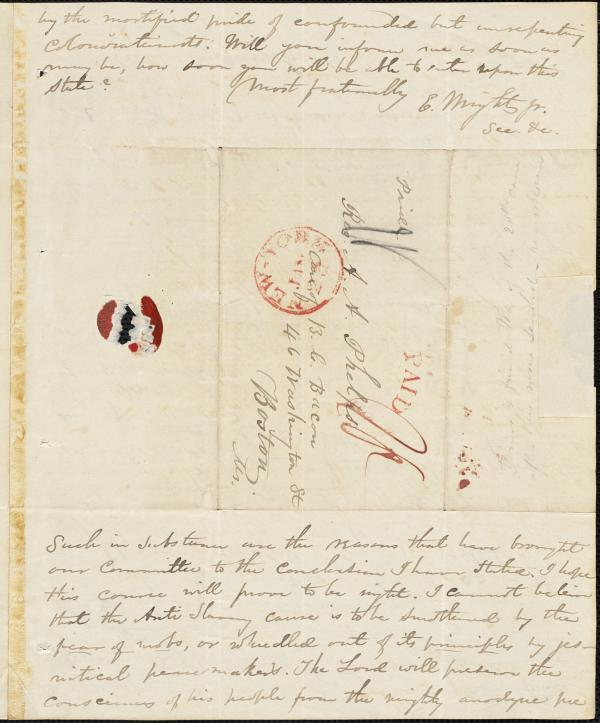 by the mortified pride of confounded but unrepenting
Colonizationists. Will you inform me as soon as
may be, how soon you will be able to enter upon this
State?
Most fraternally
E. Wright, Jr.
Sec. &c.
Paid
Rev. A. A. Phelps
Care of B. C. Bacon
46 Washington St
Boston
Ms.
NEW-YORK
PAID
Such in substance are the reasons that have brought
our Committee to the conclusion I have stated. I hope
this course will prove to be right. I cannot believe
that the Anti Slavery cause is to be smothered by the
fear of mobs, or wheedled out of its principles by jes-
uitical peacemakers. The Lord will preserve the
consciences of his people from the mighty anodyne pre